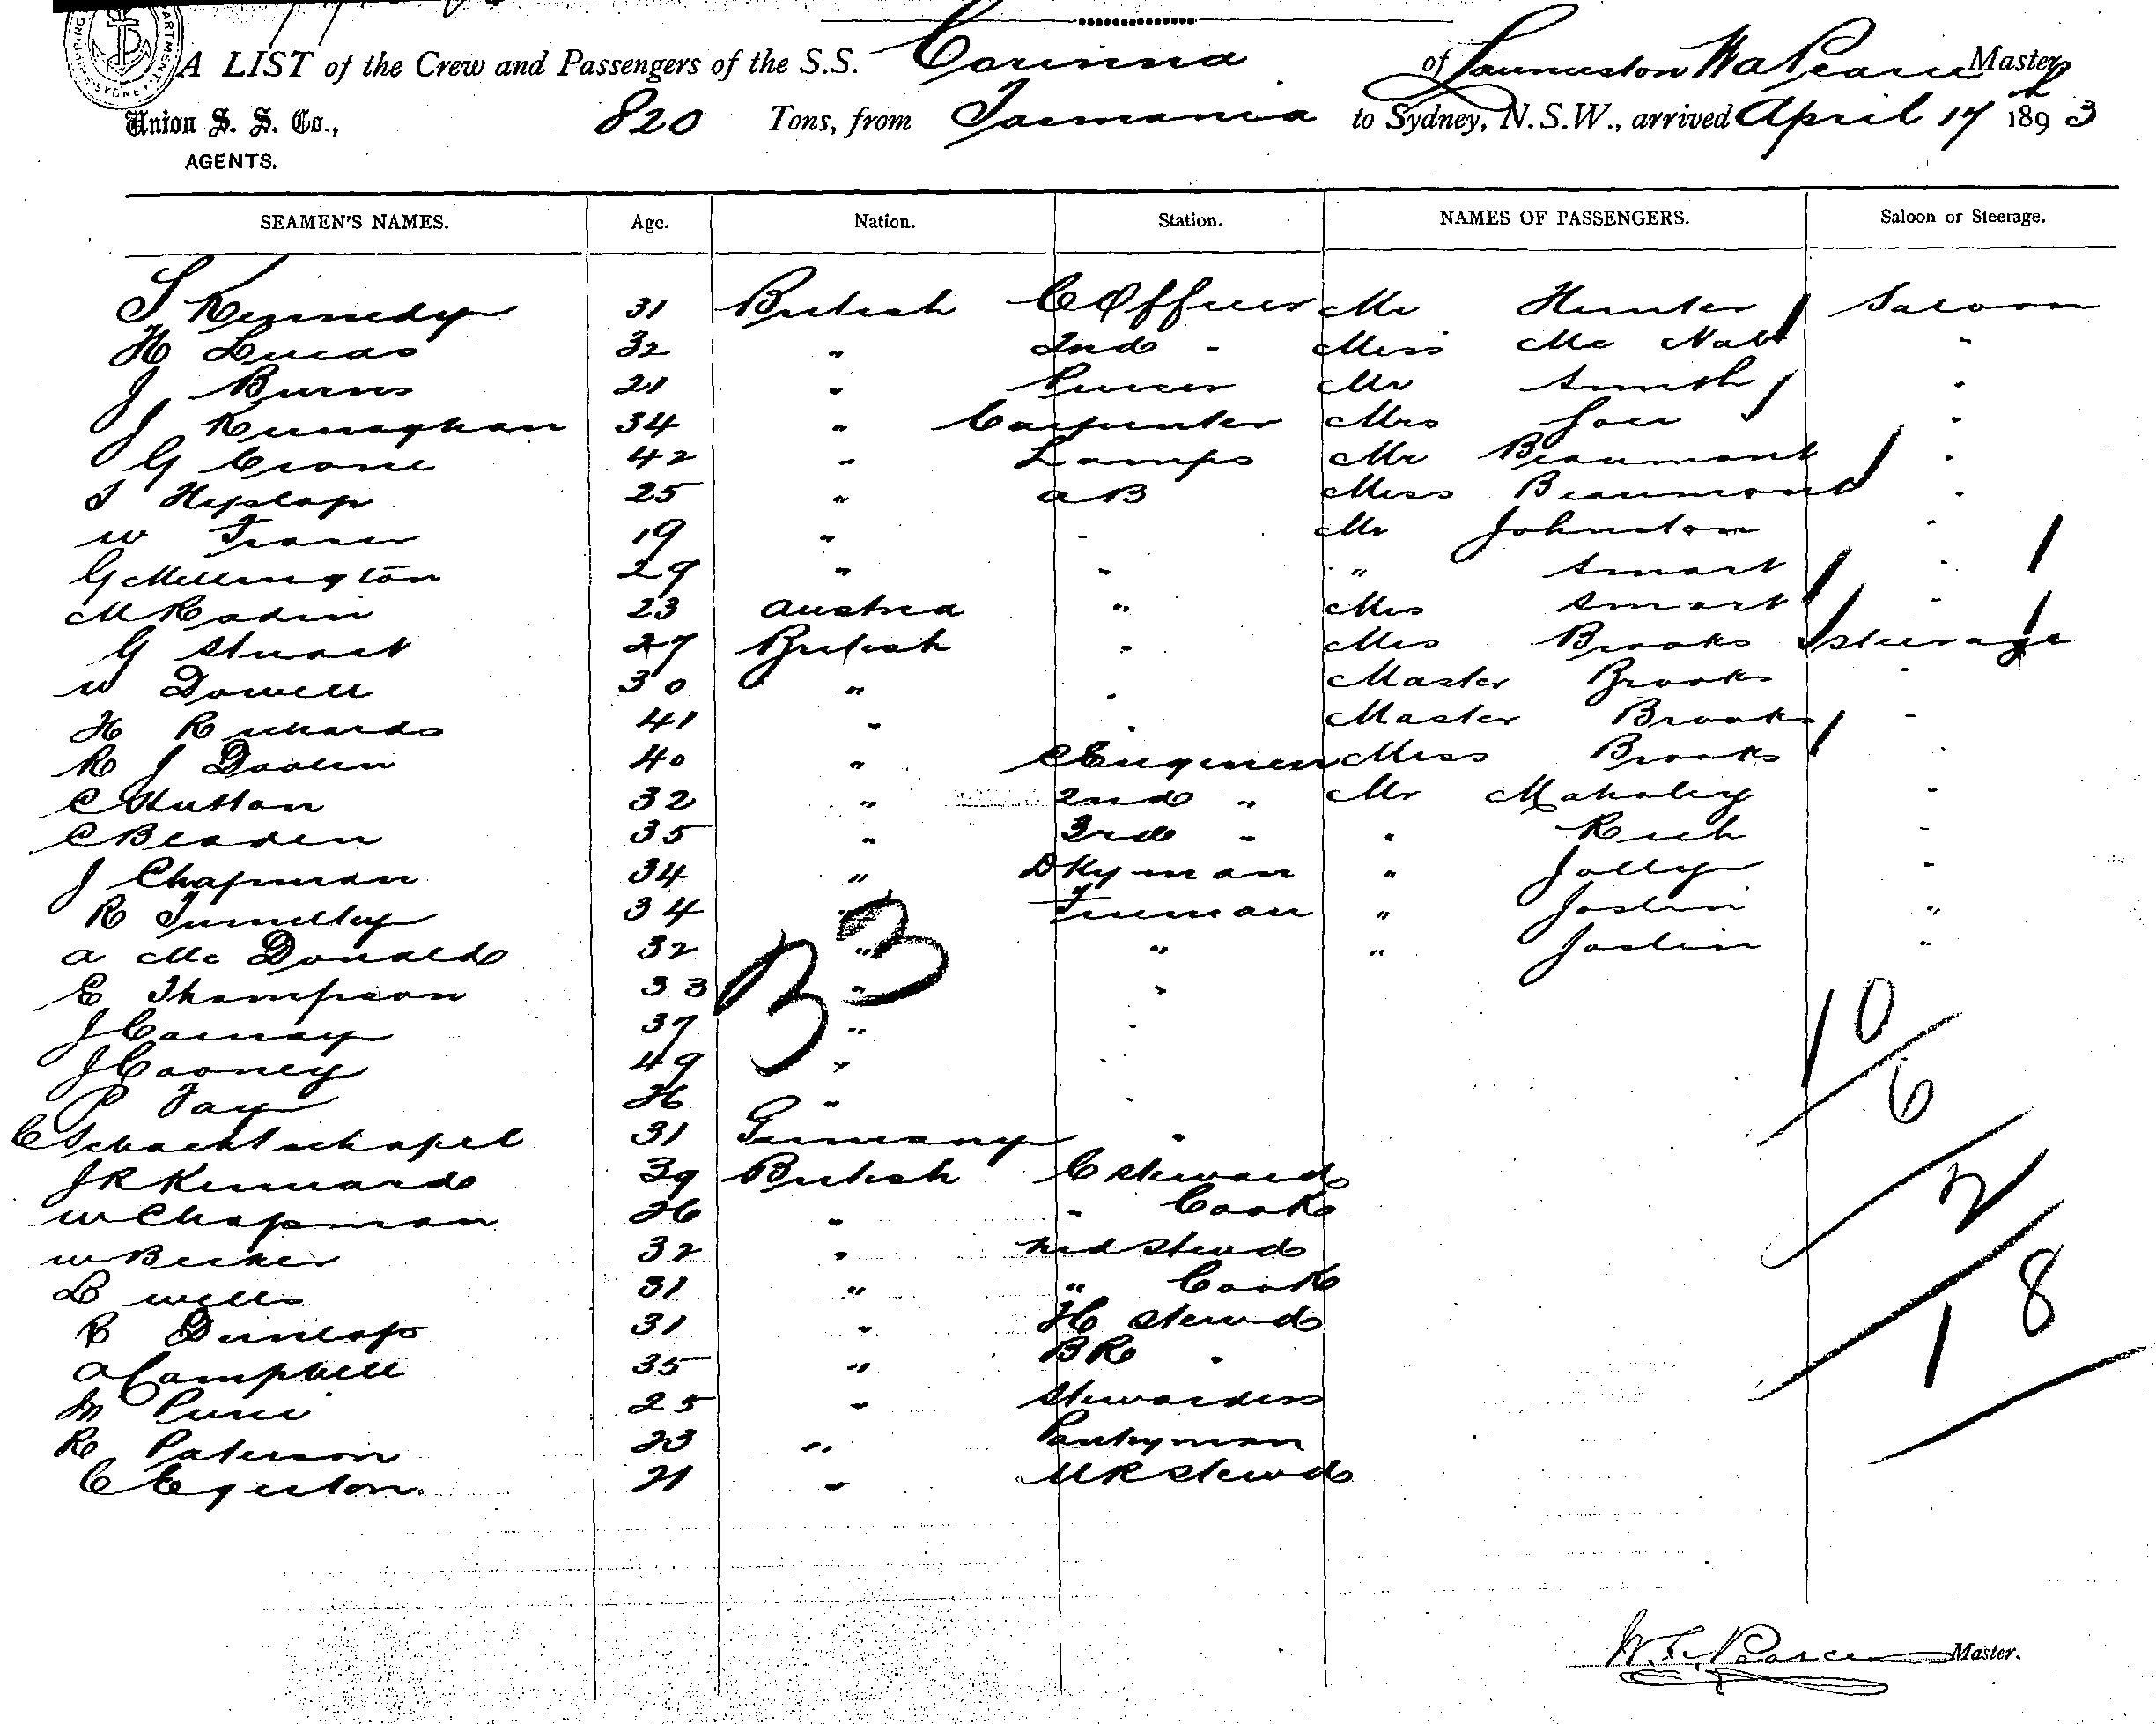 A LIST of the Crew and Passengers of the S.S. Corinna of Launceston Wa Pearce Master
Union S. S. Co., 820 Tons, from Tasmania to Sydney, N.S.W., arrived April 17th 1893
AGENTS.
SEAMEN'S NAMES. Age. Nation. Station. NAMES OF PASSENGERS. Saloon or Steerage.
S Kennedy 31 British C Officer Mr Hunter Saloon
H Lucas 32 " 2nd " Miss Mc Nab "
J Burns 21 " Purser Mr Smith "
J Kernaghan 34 " Carpenter Mrs "
G Crone 42 " Lamps Mr Beaumont "
J Hyslop 25 " a B Miss Beaumont "
W Fraser 19 " " Mr Johnston "
G Millington 29 " " " Smart "
M Radin 23 Austria " Mrs Smart "
G Stuart 27 British " Mrs Brooks Steerage
W Dowell 30 " " Master Brooks "
H Richards 41 " " Master Brooks "
R J Doolin 40 " C Engineer Miss Brooks "
C Hutton 32 " 2nd " Mr Mahaley "
C Beaden 35 " 3rd " " Rich "
J Chapman 34 " DKyman " Jolly "
R Tumelty 34 " Fireman " Joslin "
a Mc Donald 32 " " " Joslin "
E Thompson 33 " "
J Carnay 37 " "
J Cooney 49 " "
P Fay 26 " "
C Schachtschapel 31 Germany "
J R Kennard 39 British C Steward
W Chapman 26 " " Cook
W Becker 32 " 2nd Stewd
L Wells 31 " " Cook
R Dunlop 31 " H Stewd
a Campbell 35 " BR "
M 25 " Stewardess
R Paterson 23 " Pantryman
C Egerton 21 " MR Stewd
33
10
6
2
18
W. A. Pearce Master.